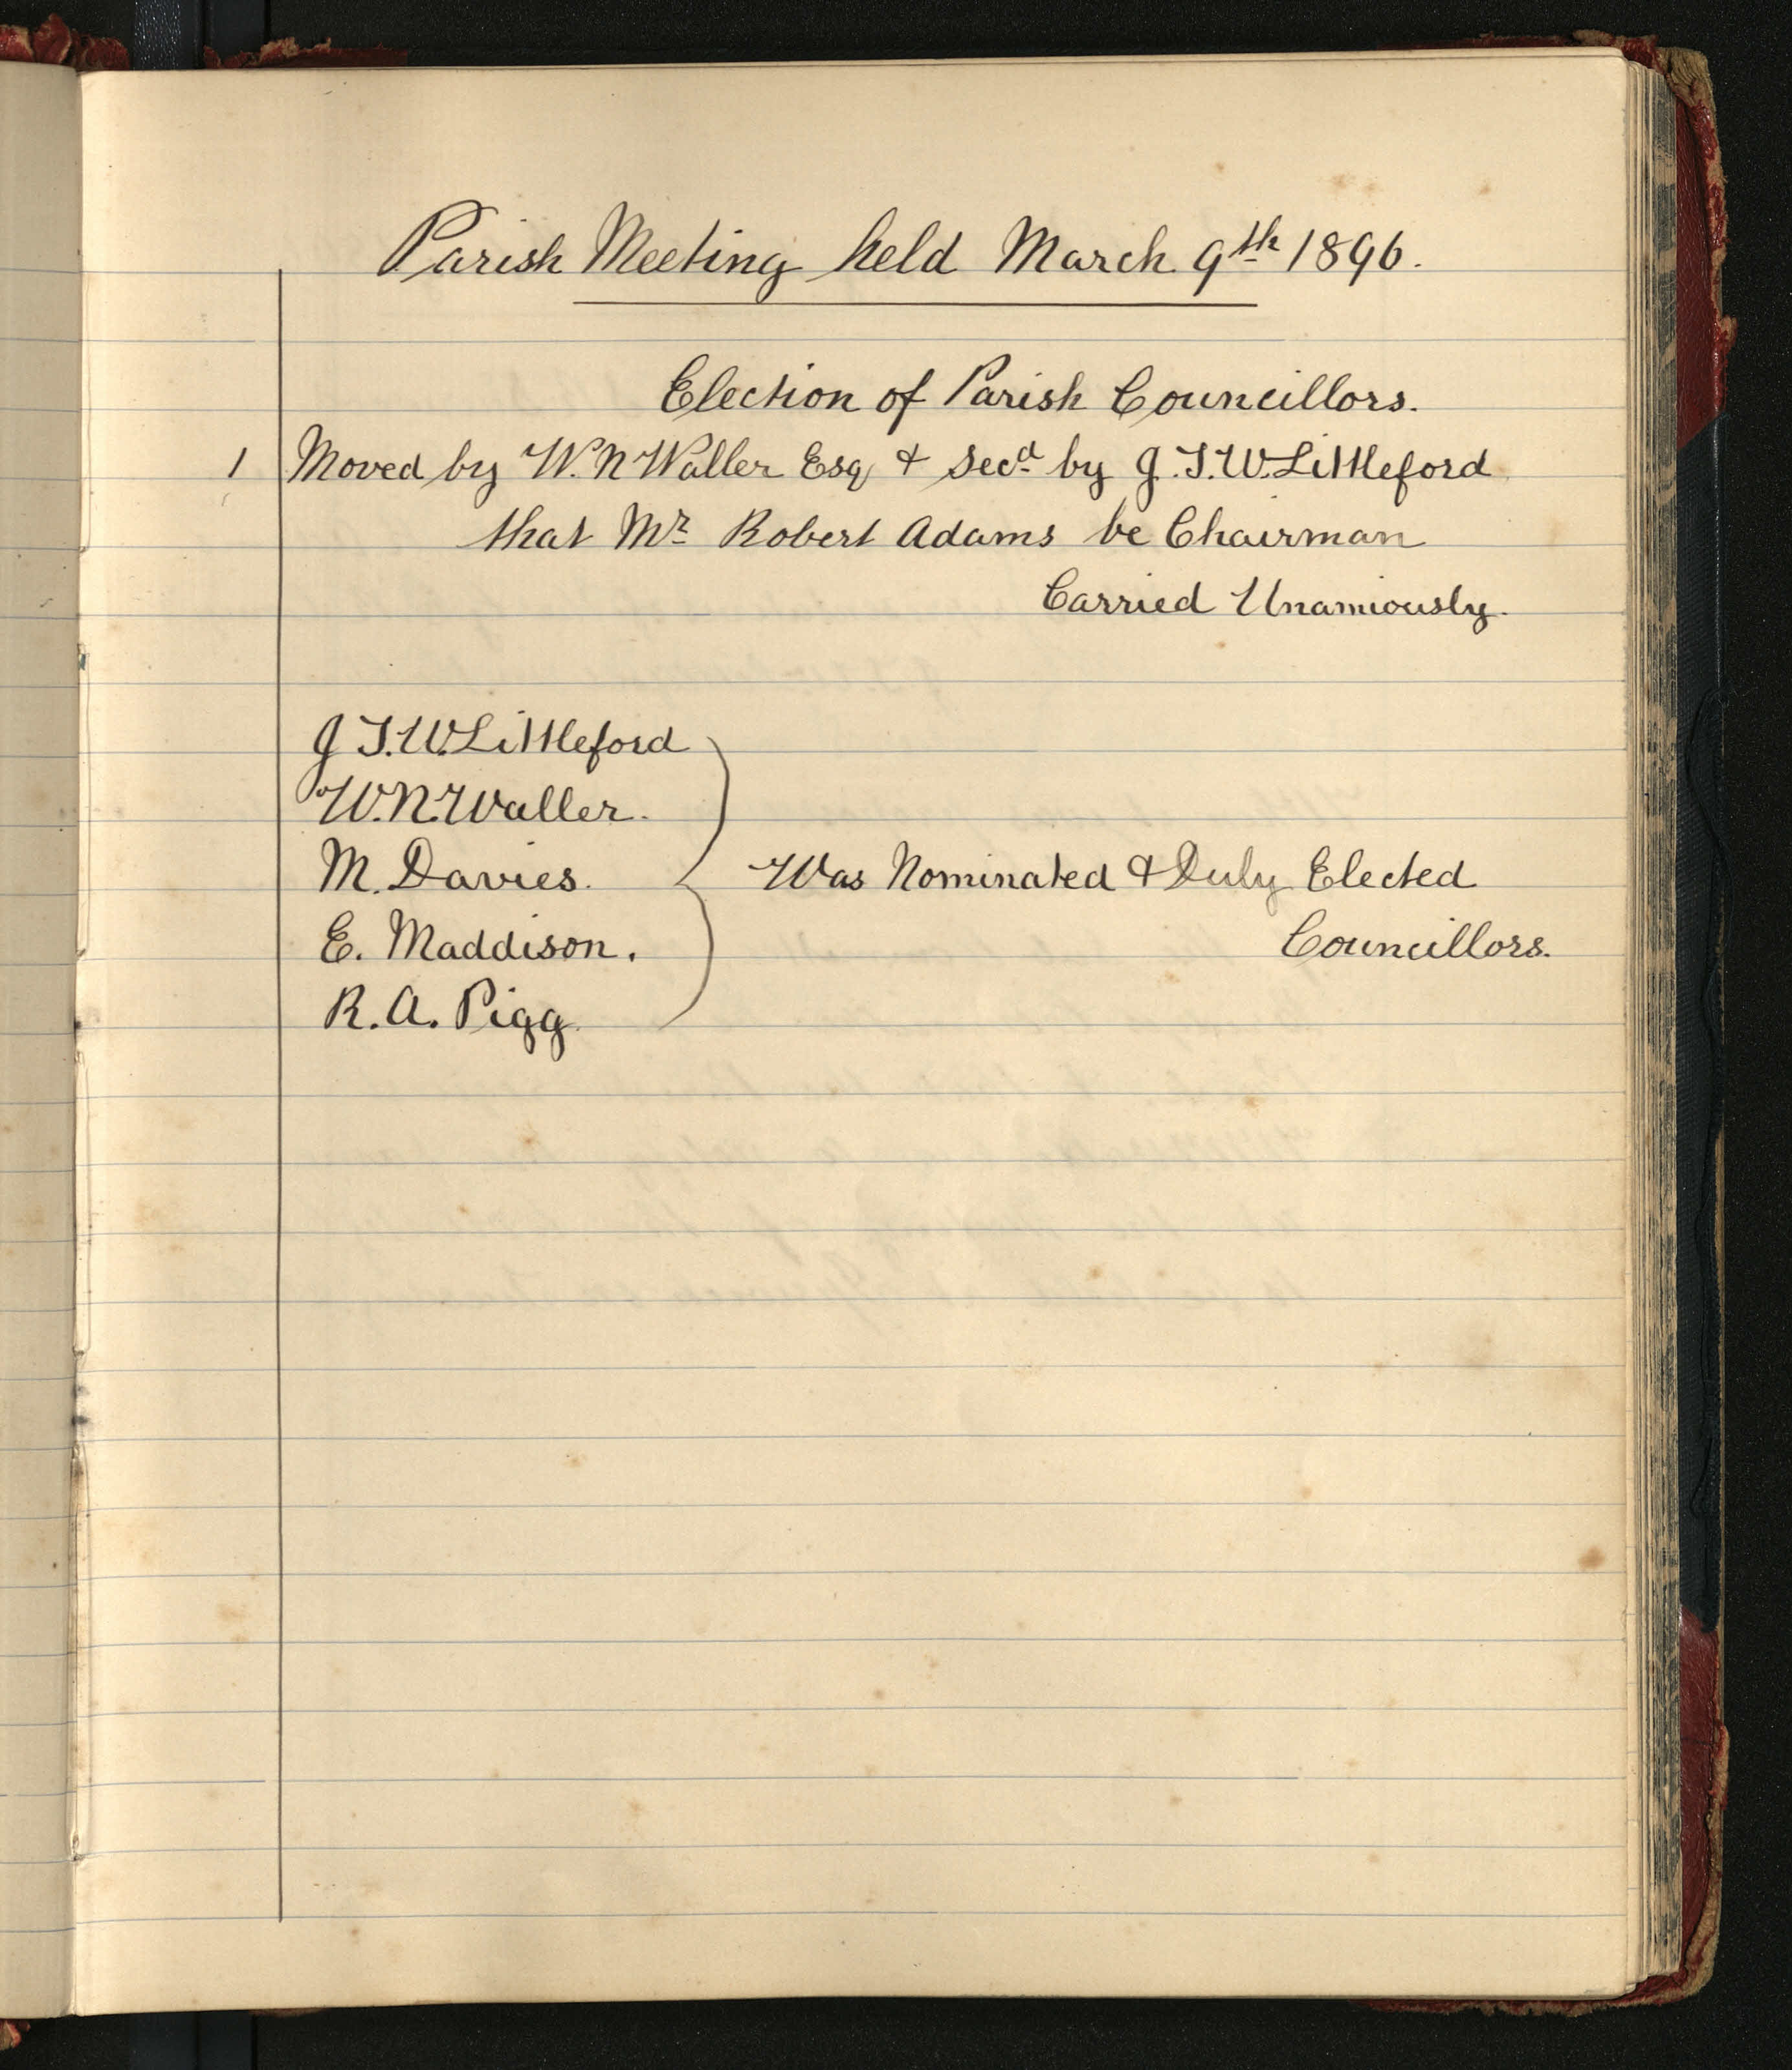 Parish Meeting held March 9th 1896.
Election of Parish Councillors.
1 Moved by W. N Waller Esq & Secd by J. T. W. Littleford
that Mr Robert Adams be Chairman
Carried Unamiously.
J T. W. Littleford
W. N. Waller.
M. Davies. Was Nominated & Duly Elected
E. Maddison. Councillors.
R. A. Pigg.